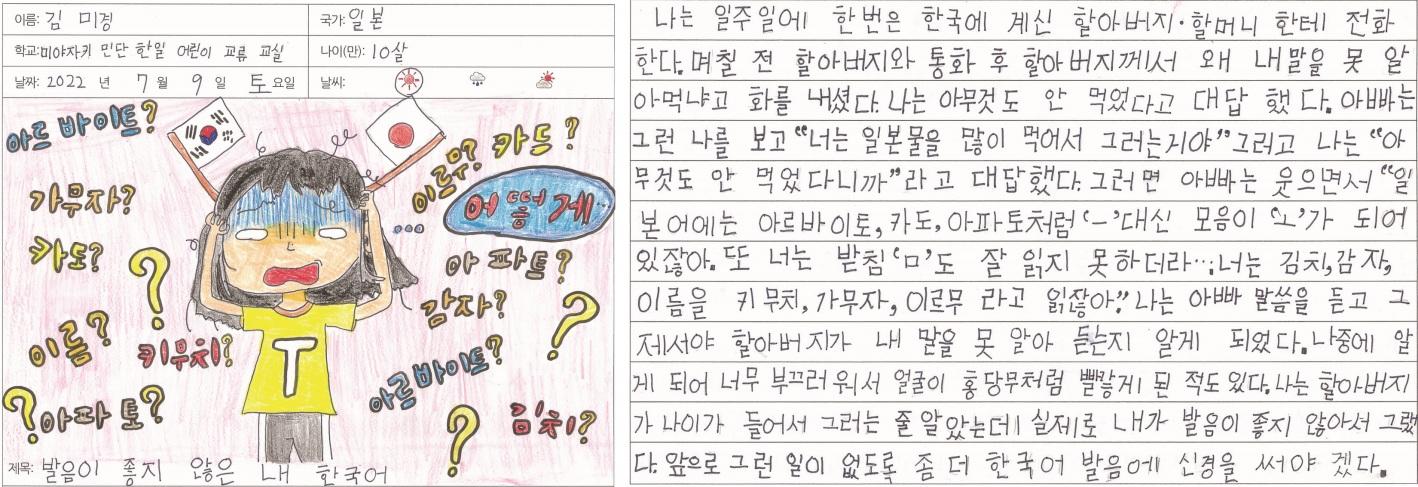 이름: 김 미경
국가: 일본
학교: 미야자키 민단 한일 어린이 교류 교실
나이(만): 10살
날짜: 2022 년 7 월 9 일 토 요일
날씨:
아르 바이트?
가무자?
카도?
이름?
키무치?
아파토?
이르무?
카드?
어떻게
...
아파트?
감자?
아르바이토?
김치?
T
제목: 발음이 좋지 않은 내 한국어
나는 일주일에 한번은 한국에 계신 할아버지·할머니 한테 전화
한다. 며칠 전 할아버지와 통화 후 할아버지께서 왜 내말을 못 알
아먹냐고 화를 내셨다. 나는 아무것도 안 먹었다고 대답 했다. 아빠는
그런 나를 보고 “너는 일본물을 많이 먹어서 그러는거야” 그리고 나는 “아
무것도 안 먹었다니까” 라고 대답했다. 그러면 아빠는 웃으면서 “일
본어에는 아르바이토, 카도, 아파토처럼 ‘ㅡ’대신 모음이 ‘ㅗ’가 되어
있잖아. 또 너는 받침 ‘ㅁ’도 잘 읽지 못하더라…. 너는 김치, 감자,
이름을 키무치, 가무자, 이르무 라고 읽잖아.” 나는 아빠 말씀을 듣고 그
제서야 할아버지가 내 말을 못 알아 듣는지 알게 되었다. 나중에 알
게 되어 너무 부끄러워서 얼굴이 홍당무처럼 빨갛게 된 적도 있다. 나는 할아버지
가 나이가 들어서 그러는 줄 알았는데 실제로 내가 발음이 좋지 않아서 그랬
다. 앞으로 그런 일이 없도록 좀 더 한국어 발음에 신경을 써야 겠다.